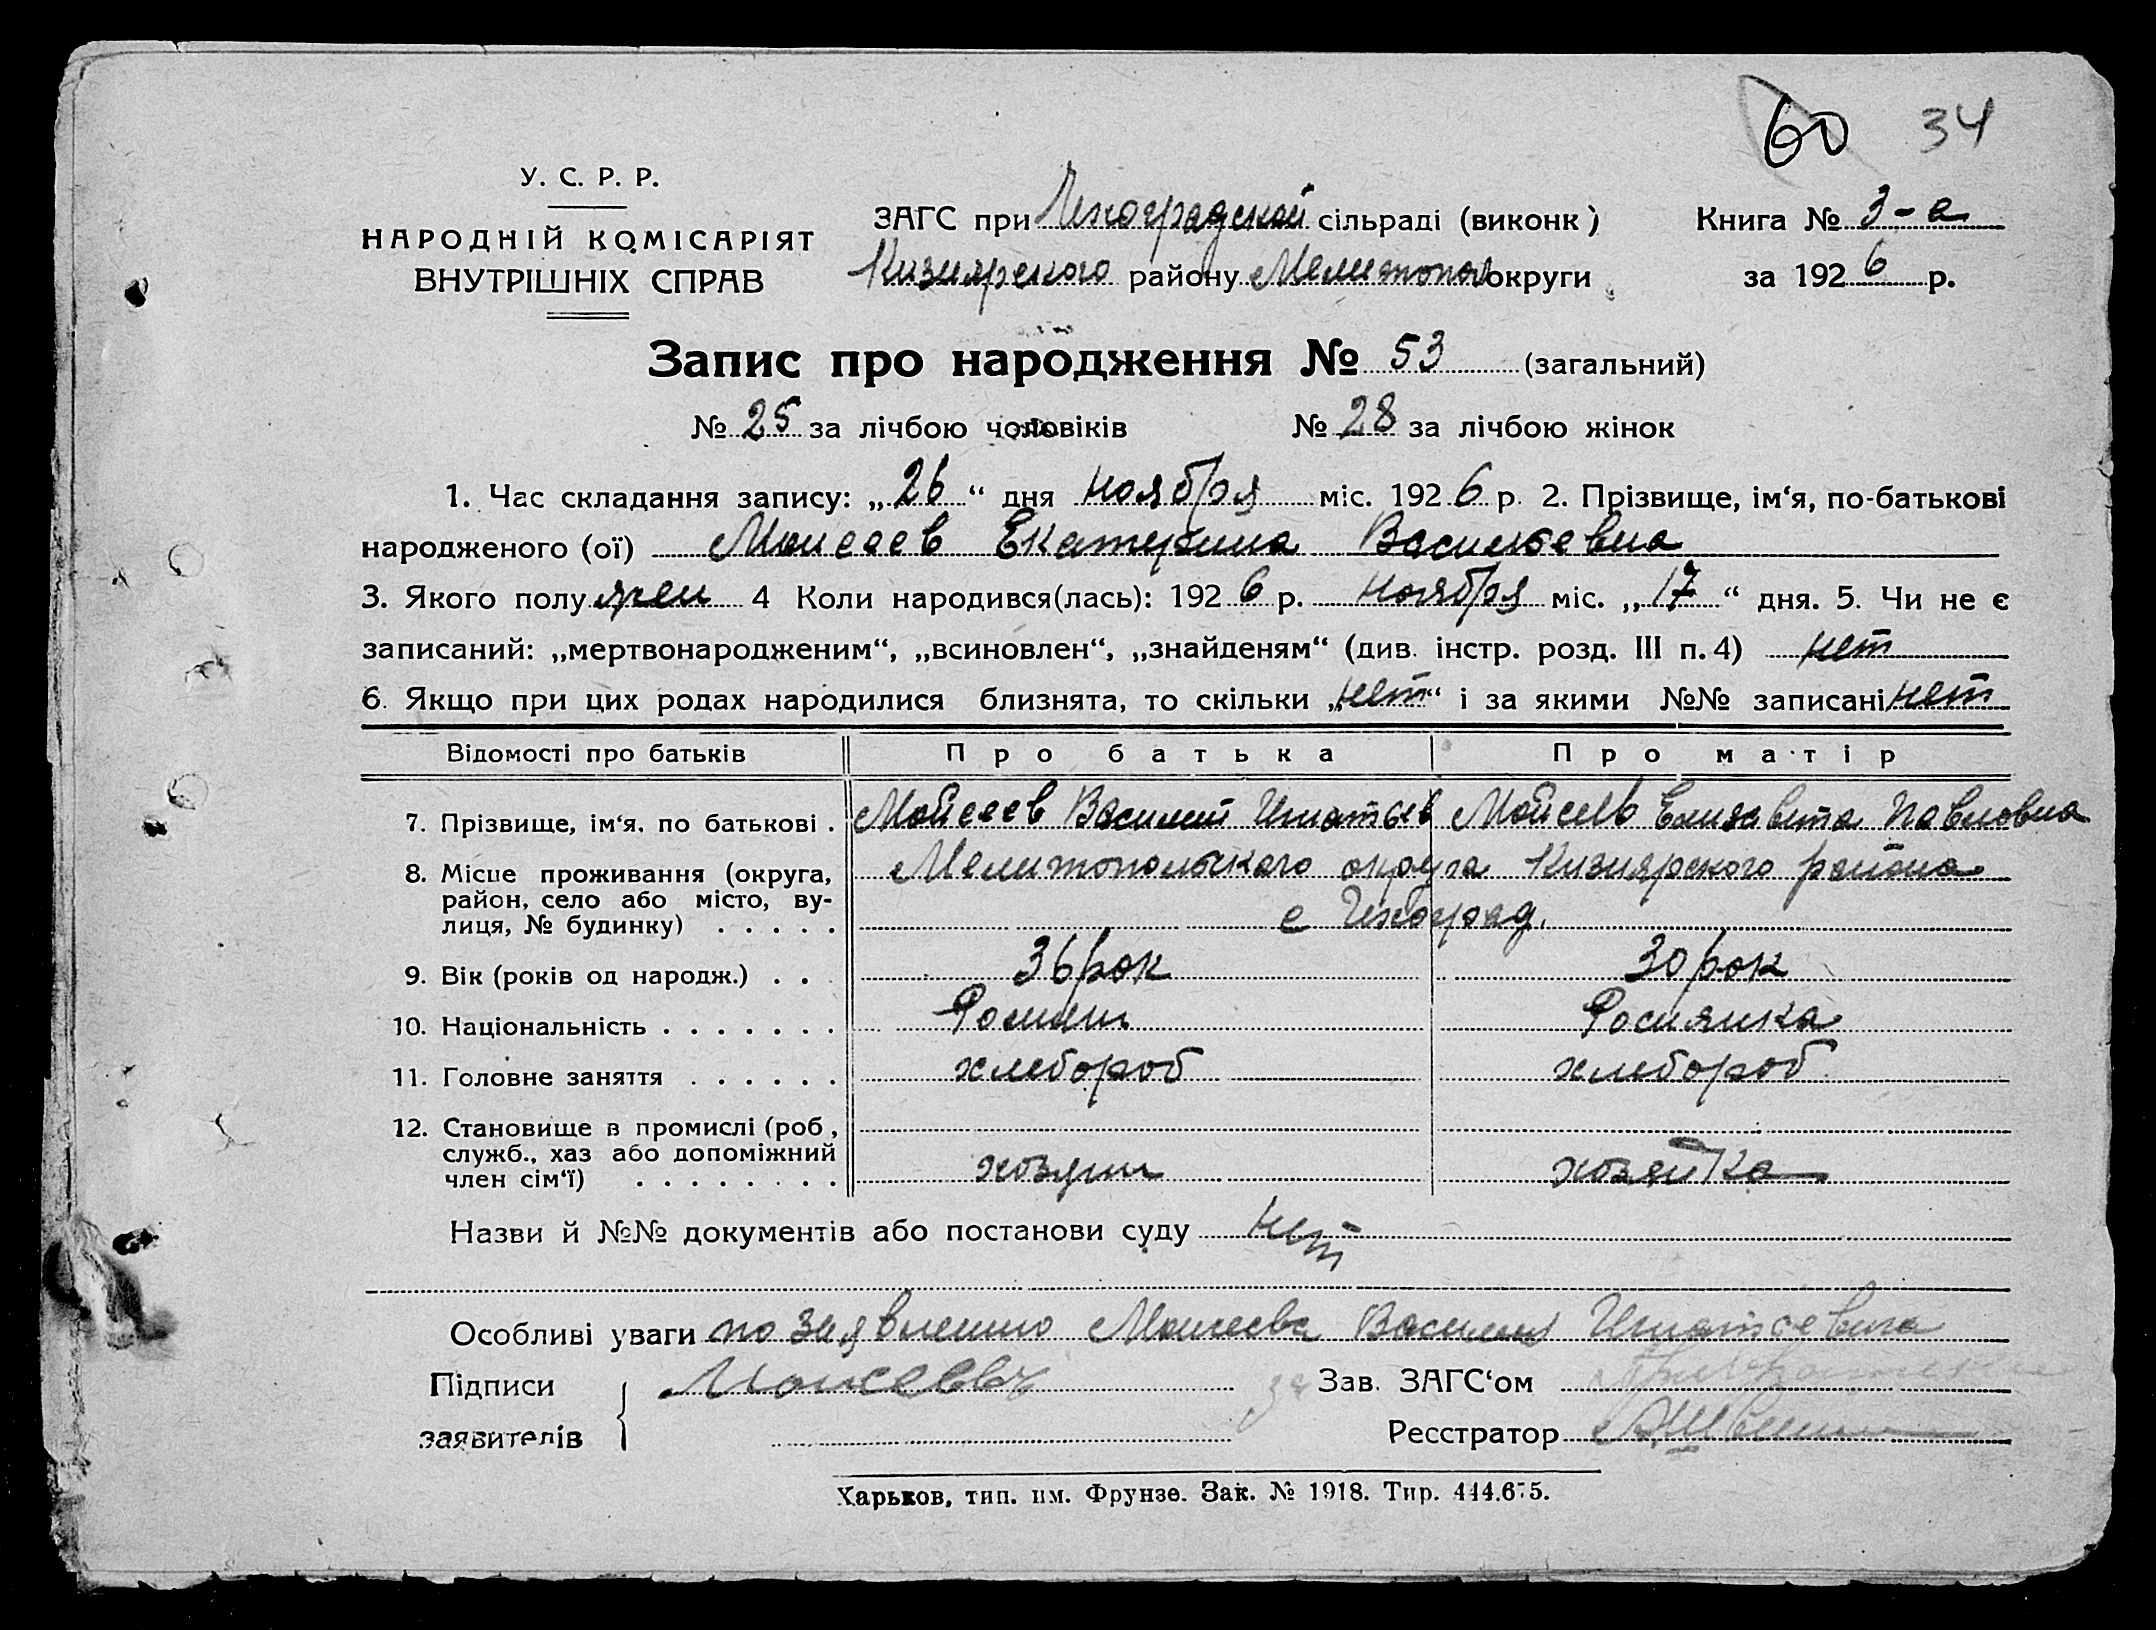 60 34
У. С. Р. Р.
НАРОДНІЙ КОМІСАРІЯТ
ВНУТРІШНІХ СПРАВ
ЗАГС при Ихоградской сільраді (виконк)
Кизиярского району Мелитопол округи
Книга № 3-а
за 1926 р.
Запис про народження № 53 (загальний)
№ 25 за лічбою чоловіків № 28 за лічбою жінок
1. Час складання запису: „26“ дня ноября міс. 1926 р. 2. Прізвище, ім‘я, по-батькові
народженого (ої) Моисеев Екатерина Васильевна
3. Якого полу жен 4 Коли народився(лась): 1926 р. ноября міс. „17“ дня. 5. Чи не є
записаний: „мертвонародженим“, „всиновлен“, „знайденям“ (див. інстр. розд. III п. 4) нет
6. Якщо при цих родах народилися близнята, то скільки „нет“ і за якими №№ записані нет
Відомості про батьків Про батька Про матір
7. Прізвище, ім‘я, по батькові . Мойсеев Василий Игнатьев Мойсеев Елизавета Павловна
8. Місце проживання (округа, район, село або місто, вулиця, № будинку) . . . . . Мелитопольского округа Кизиярского района
с Ихоград.
9. Вік (років од народж.) . . . 36 рок 30 рок
10. Національність . . . . . . . Росиян Росиянка
11. Головне заняття . . . . . . хлебороб хлебороб
12. Становище в промислі (роб, служб., хаз або допоміжний член сім‘ї) . . . . . . . . хозяин хозяйка
Назви й №№ документів або постанови суду нет
Особливі уваги по заявлению Моисеева Василия Игнатьевича
Підписи Моисеевъ за Зав. ЗАГС‘ом
заявителів Ресстратор
Харьков, тип. им. Фрунзе. Зак. № 1918. Тир. 444.675.